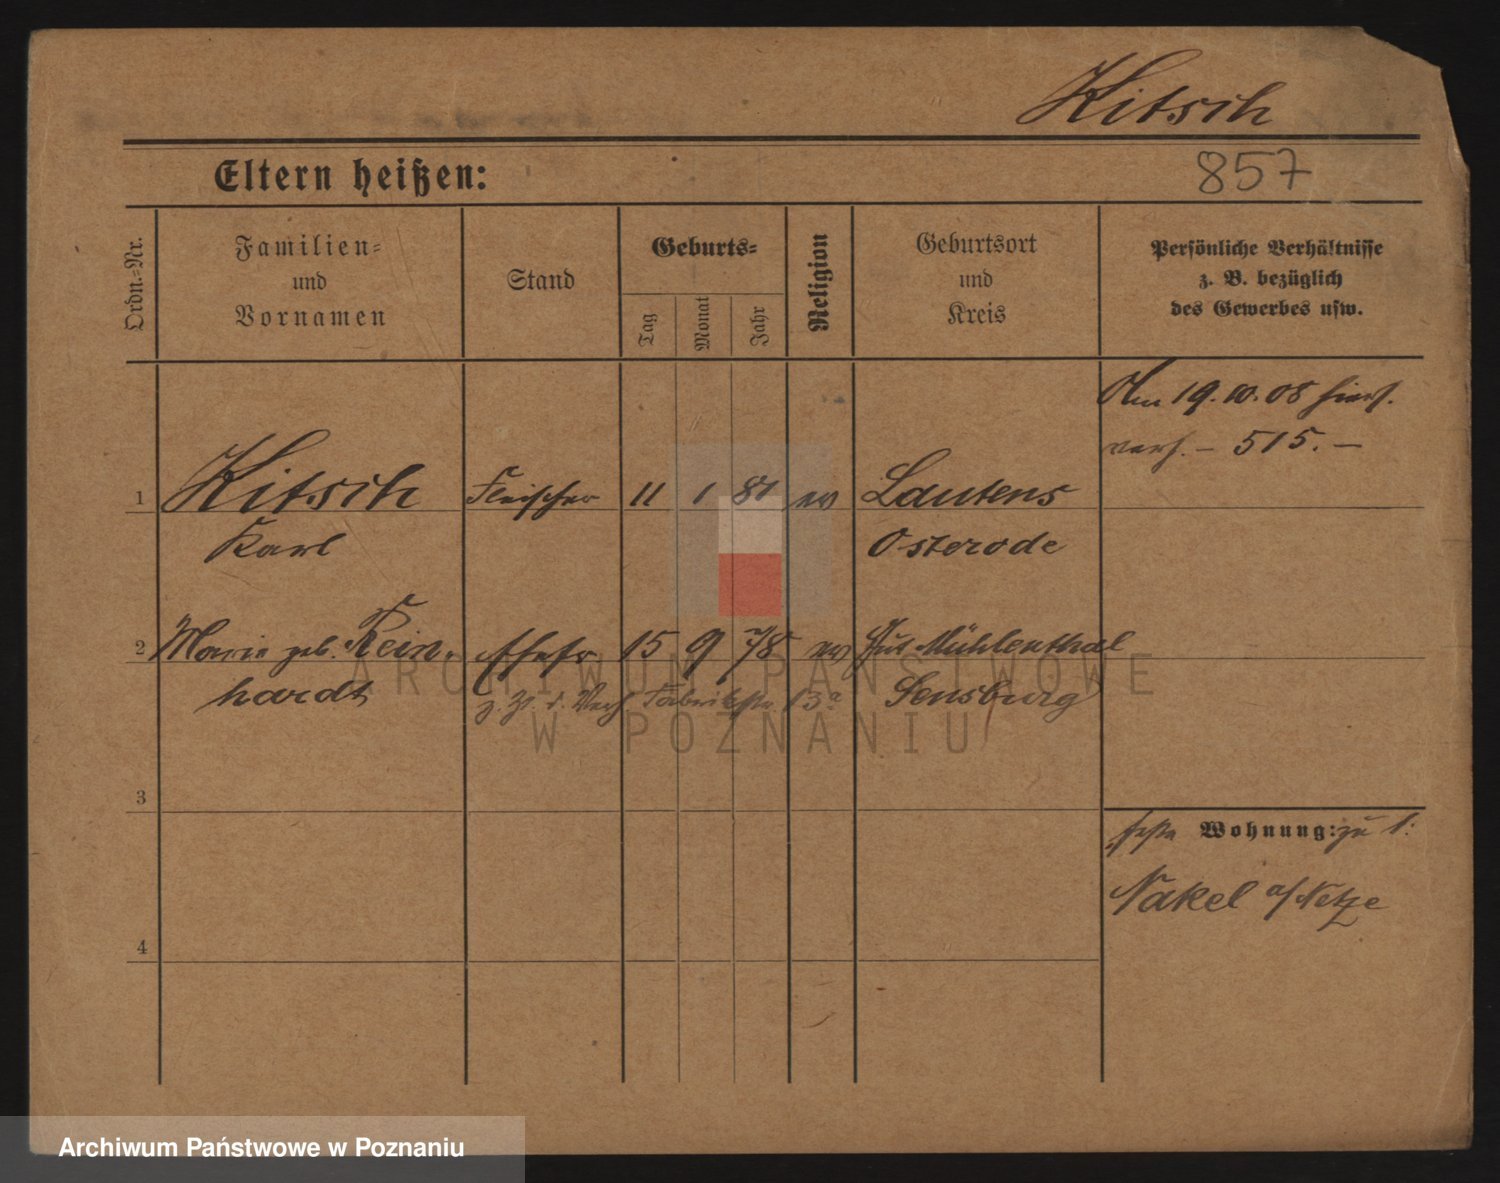 Kitsch
857
Eltern heißen:
Ordn.=Nr.
Familien=
und
Vornamen
Stand
Geburts=
Tag
Monat
Jahr
Religion
Geburtsort
und
Kreis
Persönliche Verhältnisse
z. B. bezüglich
des Gewerbes usw.
Am 19.10.08 hiers.
verh. – 515. –
1 Kitsch Fleischer 11 1 81 ev Lautens
Karl Osterode
2 Marie geb. Rein- Ehefr 15 9 78 ev Gut Mühlenthal
hardt z. Zt. d. Verh Fabrikstr 13a Sensburg
3
feste Wohnung: zu 1:
Nakel a/Netze
4
ARCHIWUM PAŃSTWOWE
W POZNANIU
Archiwum Państwowe w Poznaniu